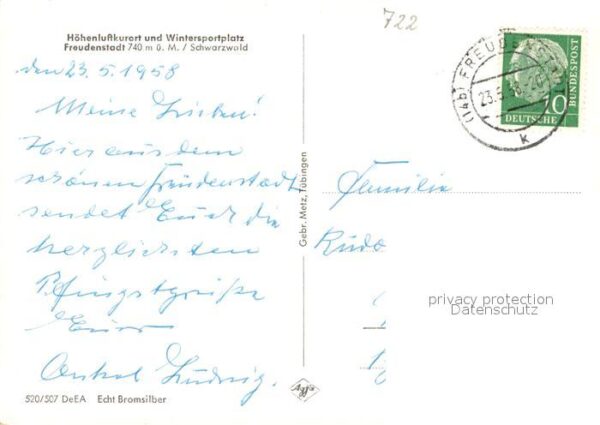 722
Höhenluftkurort und Wintersportplatz
Freudenstadt 740 m ü. M. / Schwarzwald
den 23. 5. 1958
Meine Lieben!
Hier aus dem
schönen Freudenstadt
sendet Euch die
herzlichsten
Pfingstgrüße
Euer
Onkel Ludwig.
520/507 DeEA Echt Bromsilber
Gebr. Metz, Tübingen
Agfa
(14b) FREUDENSTADT
23.5.
k
10
DEUTSCHE
BUNDESPOST
Familie
privacy protection
Datenschutz